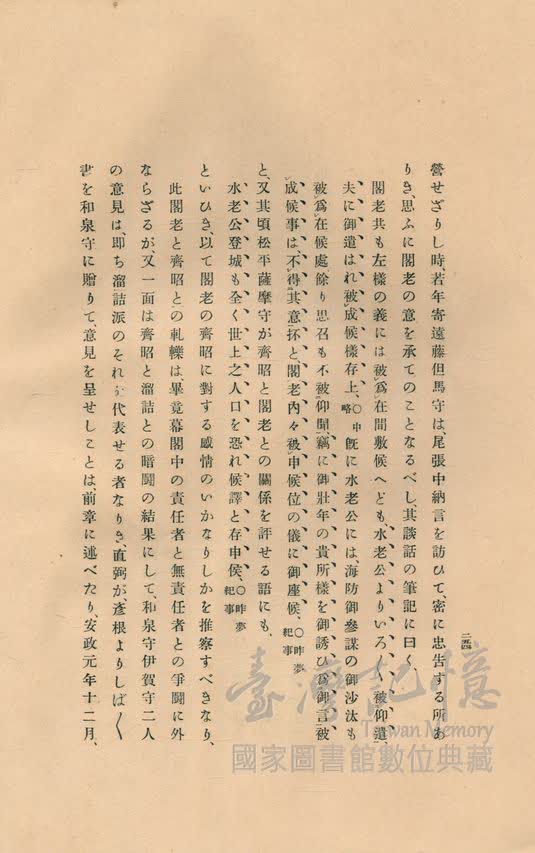 二五四
營せざりし時、若年寄遠藤但馬守は、尾張中納言を訪ひて、密に忠告する所あ
りき、思ふに閣老の意を承てのことなるべし、其談話の筆記に曰く、
閣老共も左樣の義には被㆑爲㆑在間敷候へども、水老公よりいろ〱被㆑仰遣㆑、
夫に御遣はれ被㆑成候樣存上、○中略 旣に水老公には、海防御參謀の御沙汰も
被㆑爲㆑在候處、餘り思召も不㆑被㆑仰聞㆑、竊に御壯年の貴所樣を御誘ひ、爲㆑御言㆑被
㆑成候事は、不㆑得㆓其意㆒抔と、閣老內々被㆑申候位の儀に御座候、○昨夢紀事
と、又其頃松平薩摩守が齊昭と閣老との關係を評せる語にも、
水老公登城も全く世上之人口を恐れ候譯と存申侯、○昨夢紀事
といひき、以て閣老の齊昭に對する感情のいかなりしかを推察すべきなり、
此閣老と齊昭との軋轢は、畢竟幕閣中の責任者と無責任者との爭鬪に外
ならざるが、又一面は齊昭と溜詰との暗鬪の結果にして、和泉守伊賀守二人
の意見は、卽ち溜詰派のそれを代表せる者なりき、直弼が、彥根よりしば〱
書を和泉守に贈りて、意見を呈せしことは、前章に述べたり、安政元年十二月、
臺灣記憶
Taiwan Memory
國家圖書館數位典藏